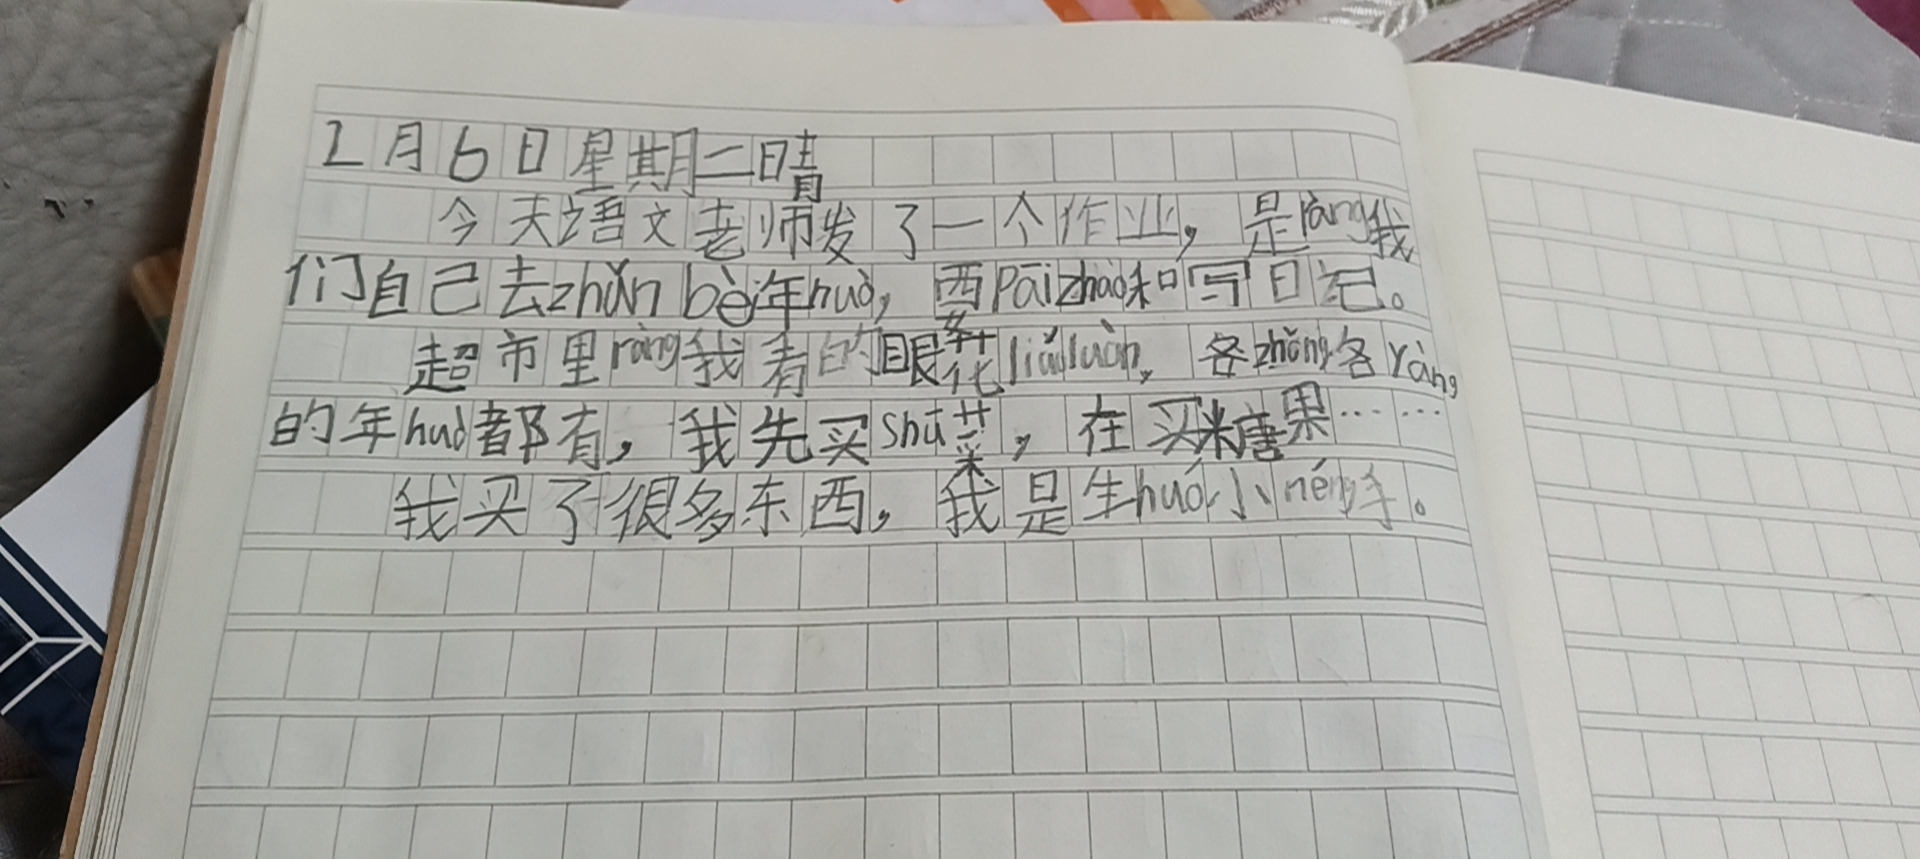 2月6日星期二晴
今天语文老师发了一个作业，是ràng我
们自己去zhǔn bèi年huò，西pāizhào和写日记。
超市里ràng我看的眼花liáoluàn，各zhǒng各yàng
的年huò都有，我先买shū菜，在买糖果……
我买了很多东西，我是生huó小néng手。